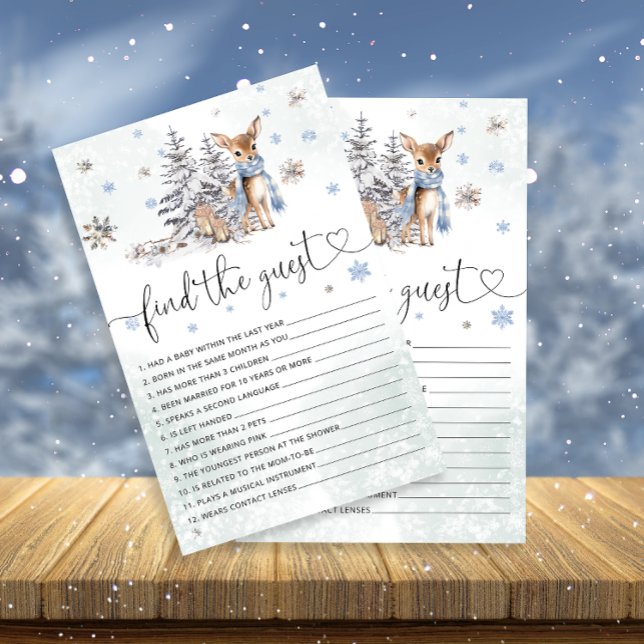 find the guest
1. HAD A BABY WITHIN THE LAST YEAR
2. BORN IN THE SAME MONTH AS YOU
3. HAS MORE THAN 3 CHILDREN
4. BEEN MARRIED FOR 10 YEARS OR MORE
5. SPEAKS A SECOND LANGUAGE
6. IS LEFT HANDED
7. HAS MORE THAN 2 PETS
8. WHO IS WEARING PINK
9. THE YOUNGEST PERSON AT THE SHOWER
10. IS RELATED TO THE MOM-TO-BE
11. PLAYS A MUSICAL INSTRUMENT
12. WEARS CONTACT LENSES
guest
AR
E
UMENT
LENSES